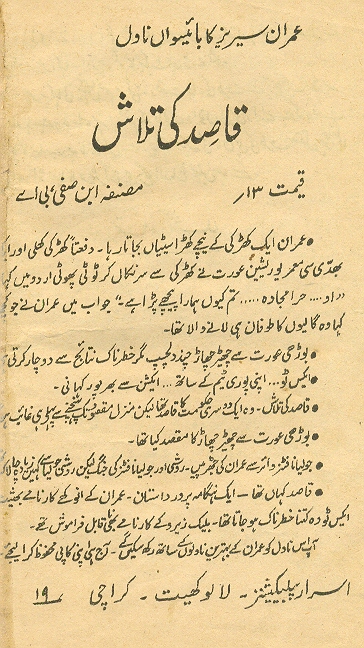 عمران سیریز کا بائیسواں ناول
قاصد کی تلاش
قیمت ۱۳/ مصنفہ ابن صفی، بی اے
• عمران ایک کھڑکی کے نیچے کھڑا سیٹیاں بجاتا رہا۔ دفعتاً کھڑکی کھلی اور ایک
بھدی سی معمر یوریشین عورت نے کھڑکی سے سر نکال کر ٹوٹی پھوٹی اردو میں کہا
"او.... حرامجادہ..... تم کیوں ہمارا پیچھے پڑا ہے۔" جواب میں عمران نے جو کچھ
کہا وہ گالیوں کا طوفان ہی لانے والا تھا۔
• بوڑھی عورت سے چھیڑ چھاڑ چند دلچسپ مگر خطرناک نتائج سے دوچار کرتی
• ایکس ٹو... اپنی پوری ٹیم کے ساتھ... ایکشن سے بھرپور کہانی۔
• قاصد کی تلاش۔ وہ ایک دوسری حکومت کا قاصد تھا لیکن منزل مقصود تک پہنچنے سے پہلے ہی غائب
• بوڑھی عورت سے چھیڑ چھاڑ کا مقصد کیا تھا۔
• جولیانا فٹزواٹر سے عمران کی جھڑپیں۔ روشی اور جولیانا فٹز کی جنگ لیکن روشی جولیا سے کہیں زیادہ چالاک
• قاصد کہاں تھا۔ ایک ہنگامہ پرور داستان۔ عمران کے انوکھے کارنامے
ایکس ٹو وہ کتنا خطرناک ہو جاتا تھا۔ بلیک زیرو کے کارنامے بھی ناقابل فراموش تھے۔
آپ اس ناول کو عمران کے بہترین ناولوں کے ساتھ رکھ سکیں گے۔ آج ہی اپنی کاپی محفوظ کرا لیجئے
اسرار پبلیکیشنز۔ لالوکھیت۔ کراچی ۱۹